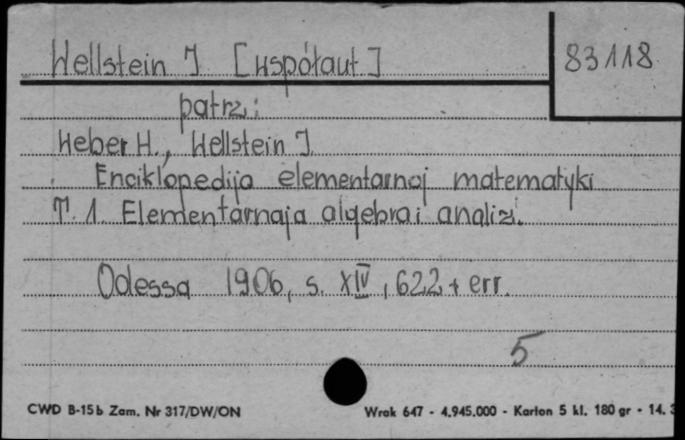 Wellstein J [współaut]
83118
patrz:
Weber H., Wellstein J.
Enciklopedija elementarnoj matematyki
T. 1. Elementarnaja algebra i analiz.
Odessa 1906, s. XIV, 622 + err.
5
CWD B-15b Zam. Nr 317/DW/ON
Wrak 647 - 4.945.000 - Karton 5 kl. 180 gr - 14.